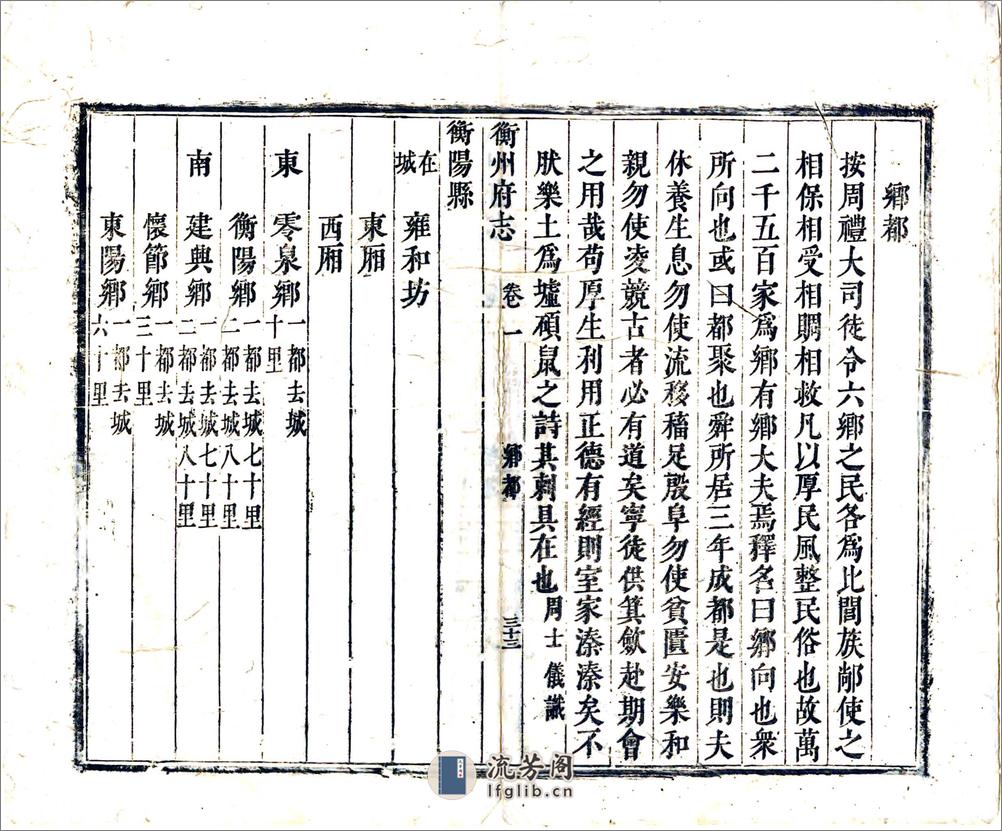 鄉都
按周禮大司徒令六鄉之民各爲比閭族鄙使之
相保相受相賙相救凡以厚民風整民俗也故萬
二千五百家爲鄉有鄉大夫焉釋名曰鄉向也衆
所向也或曰都聚也舜所居三年成都是也則夫
休養生息勿使流移穡足殷阜勿使貧匱安樂和
親勿使凌競古者必有道矣寧徒供箕斂赴期會
之用哉苟厚生利用正德有經則室家溱溱矣不
肰樂土爲墟碩鼠之詩其刺具在也周士儀識
衡州府志 卷一 鄉都 三十三
衡陽縣
在城 雍和坊
東厢
西厢
東 零泉鄉 一都去城十里
衡陽鄉 一都去城七十里 二都去城八十里
南 建興鄉 一都去城七十里 二都去城八十里
懷節鄉 一都去城三十里
東陽鄉 一都去城六十里
流芳阁
lfglib.cn